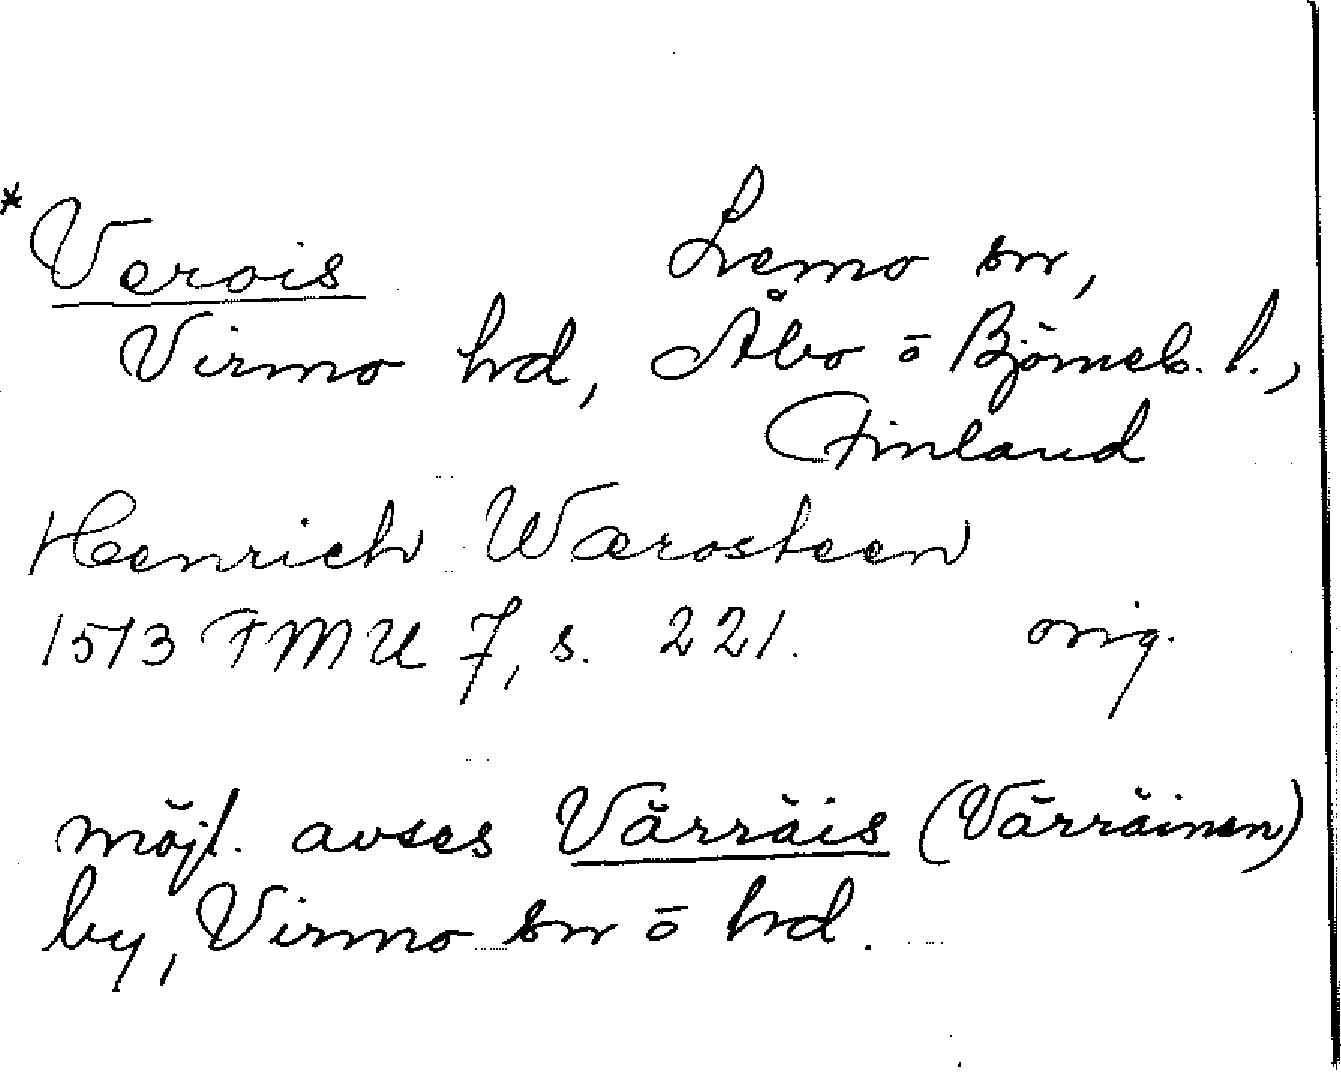 *Verois Lemo sn,
Virmo hd, Åbo o Björneb. l.,
Finland
Henrich Wærosteen
1513 FMU 7, s. 221. orig.
möjl. avses Värräis (Värräinen)
by, Virmo sn o hd.